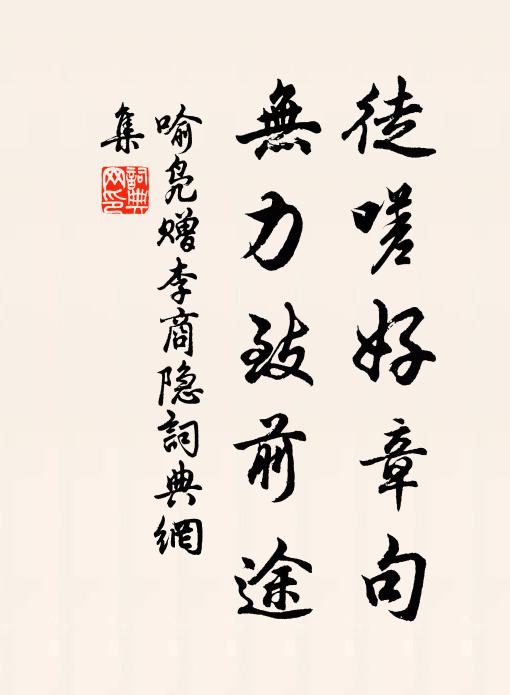 徒嗟好章句
無力致前途
喻凫赠李商隐詞典網
集
詞典
网印